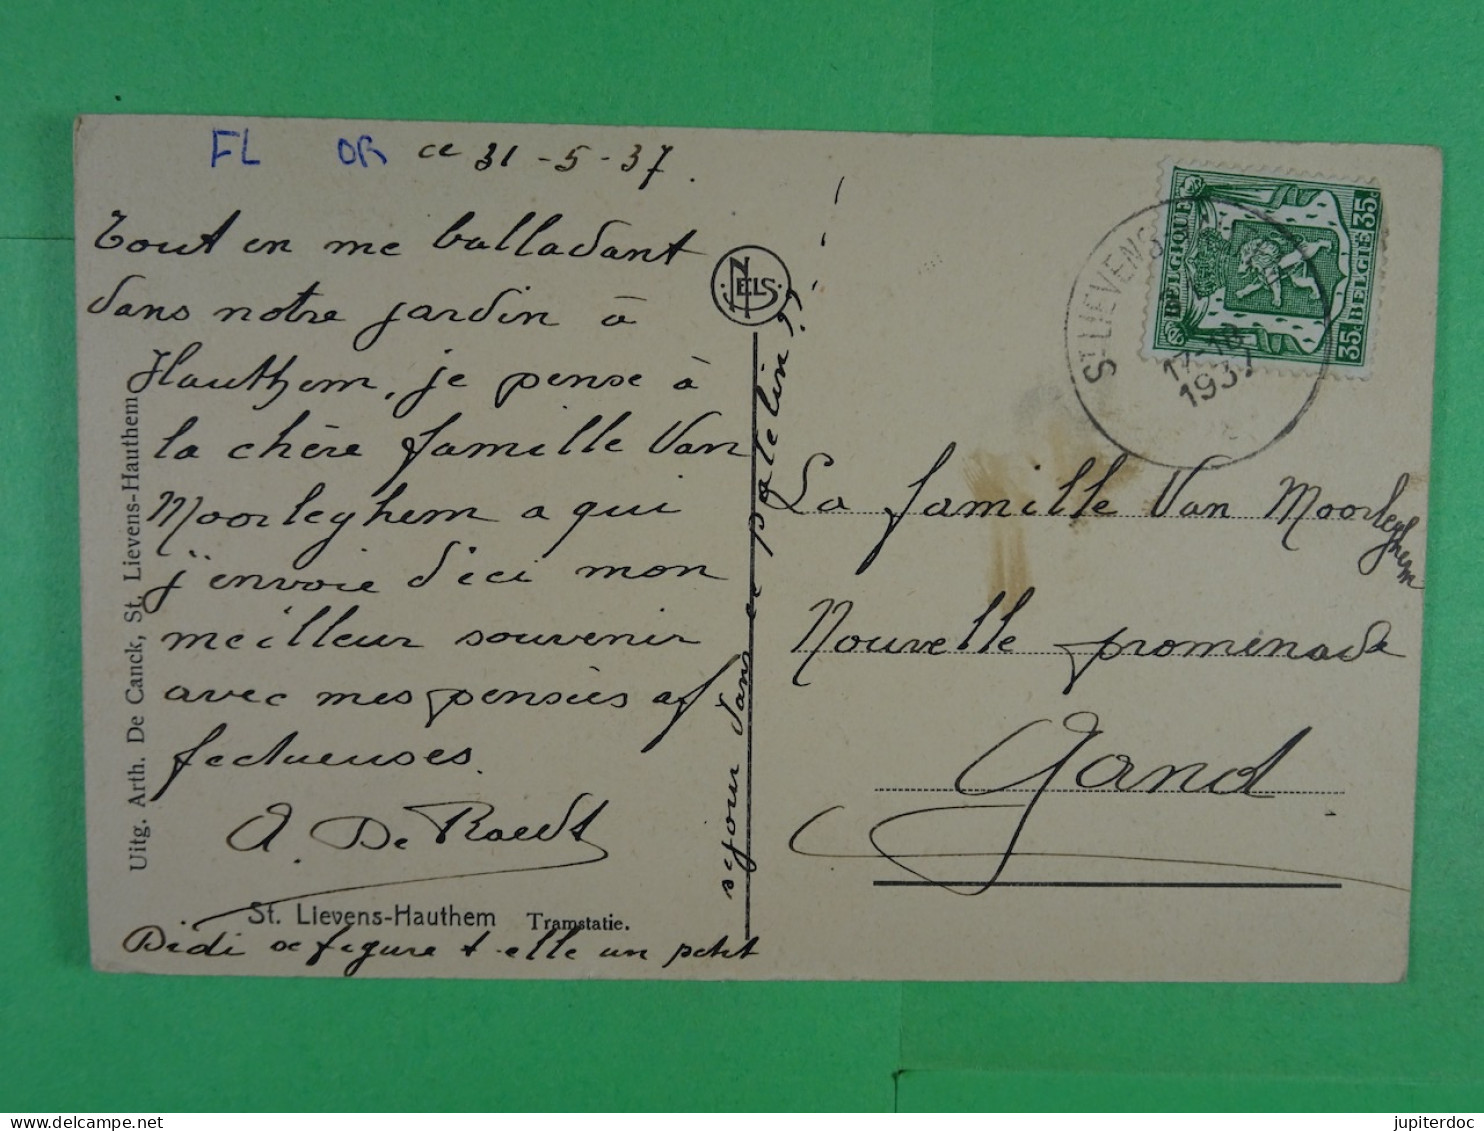 FL OR ce 31-5-37.
Tout en me balladant
dans notre jardin à
Hauthem, je pense à
la chère famille Van
Moorleghem a qui
j'envoie d'ici mon
meilleur souvenir
avec mes pensées af
fectueuses.
A. De Raedt
St. Lievens-Hauthem Tramstatie.
Didi se figure t-elle un petit
séjour dans ce patelin??
Uitg. Arth. De Canck, St. Lievens-Hauthem
NELS
ST LIEVENS
17-18
1937
BELGIQUE
35c
BELGIE
35.
La famille Van Moorleghem
Nouvelle promenade
Gand
jupiterdoc